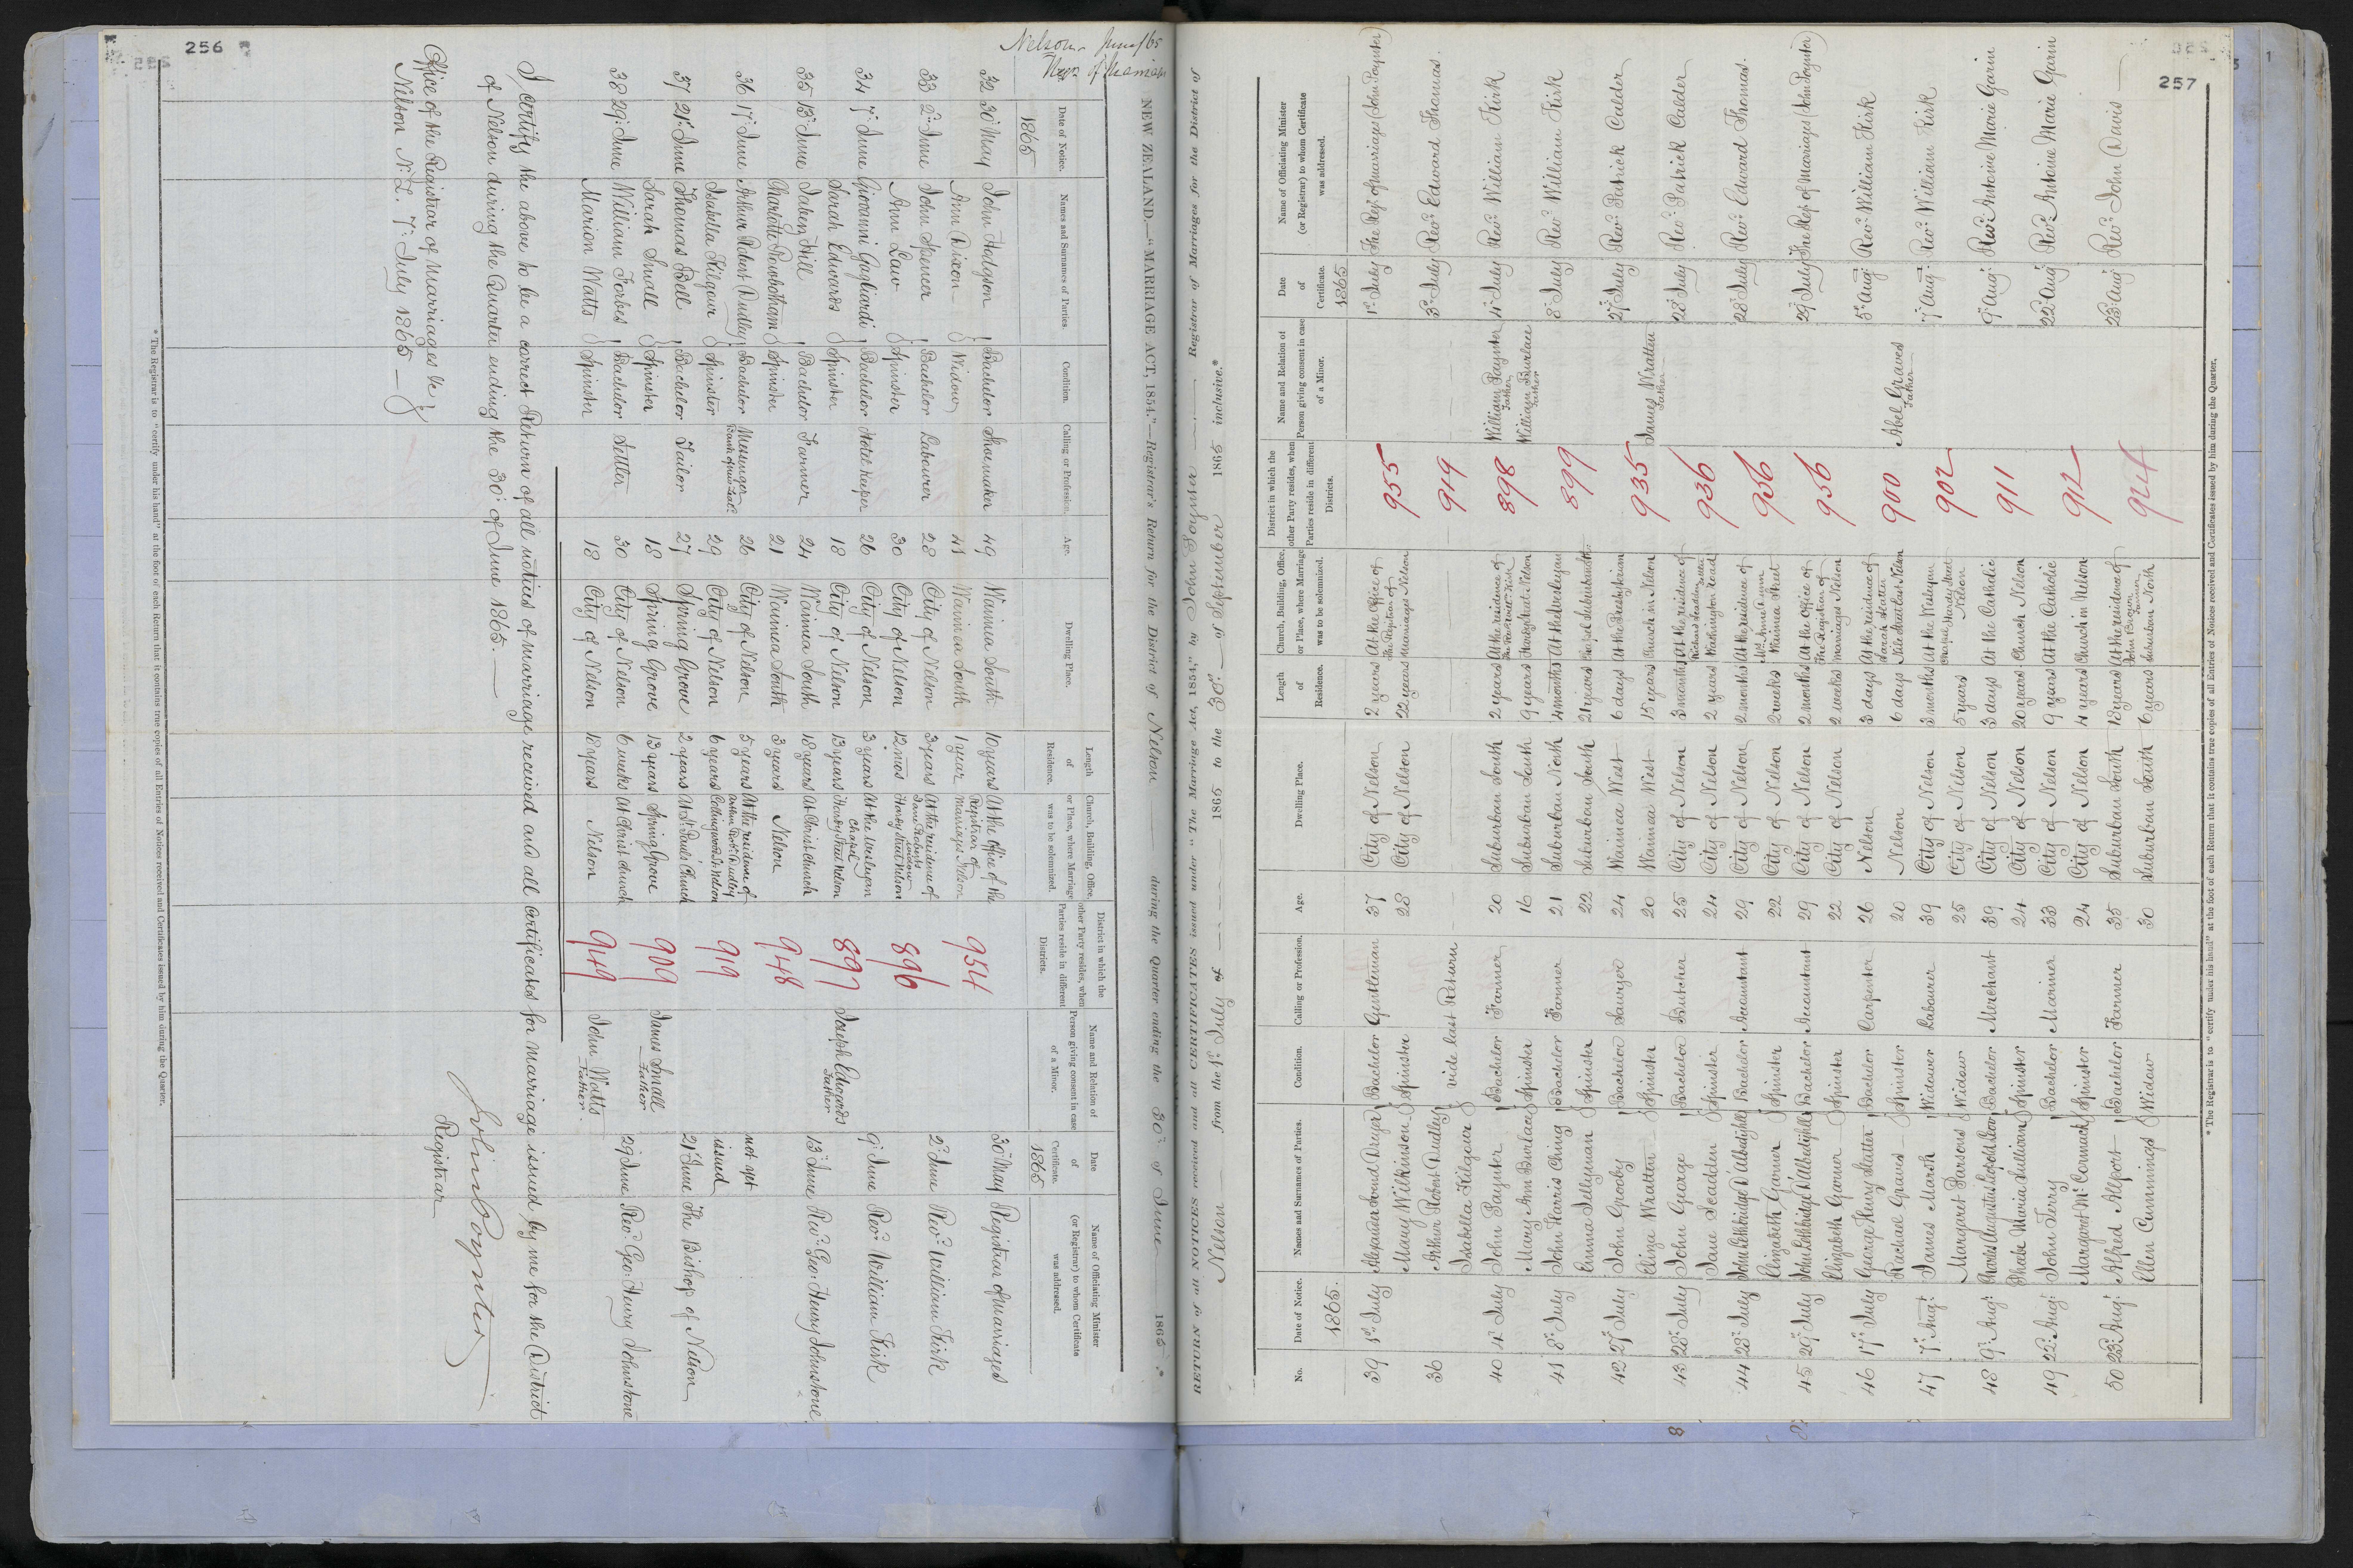 256
Nelson June/65
NEW ZEALAND.—"MARRIAGE ACT, 1854."—Registrar's Return for the District of Nelson during the Quarter ending the 30th of June 1865.*
No. Date of Notice. Names and Surnames of Parties. Condition. Calling or Profession. Age. Dwelling Place. Length of Residence. Church, Building, Office, or Place, where Marriage was to be solemnized. District in which the other Party resides, when Parties reside in different Districts. Name and Relation of Person giving consent in case of a Minor. Date of Certificate. Name of Officiating Minister (or Registrar) to whom Certificate was addressed.
1865 1865
32 30th May John Hodgson Bachelor Shoemaker 49 Waimea South 10 years At the Office of the 954 30th May Registrar of Marriages
Ann Dixon Widow 41 Waimea South 1 year Registrar of Marriages Nelson
33 2d June John Spencer Bachelor Labourer 28 City of Nelson 3 years At the residence of 896 2d June Revd William Kirk
Ann Law Spinster 30 City of Nelson 12 mos Hardy Street Nelson
34 7th June Giovanni Gagliardi Bachelor Hotel keeper 26 City of Nelson 3 years At the Wesleyan Chapel 897 Joseph Edwards 9th June Revd William Kirk
Sarah Edwards Spinster 18 City of Nelson 13 years Hardy Street Nelson Father
35 13th June Jabez Hill Bachelor Farmer 24 Waimea South 18 years At Christ Church 948 13th June Revd Geo: Henry Johnstone
Charlotte Rowbotham Spinster 21 Waimea South 3 years Nelson
36 17th June Arthur Robert Dudley Bachelor Messenger 26 City of Nelson 5 years At the residence of Arthur Robt Dudley 919 not yet
Isabella Kilgour Spinster 29 City of Nelson 6 years Collingwood St Nelson issued
37 21st June Thomas Bell Bachelor Tailor 27 Spring Grove 2 years At St Paul's Church 909 James Small 21st June The Bishop of Nelson
Sarah Small Spinster 18 Spring Grove 13 years Spring Grove Father
38 29th June William Forbes Bachelor Settler 30 City of Nelson 6 weeks At Christ Church 949 John Watts 29th June Revd Geo: Henry Johnstone
Marion Watts Spinster 18 City of Nelson 18 years Nelson Father
I certify the above to be a correct Return of all notices of marriage received and all certificates for marriage issued by me for the District
of Nelson during the Quarter ending the 30th of June 1865.
Office of the Registrar of Marriages &c
Nelson N.Z. 7th July 1865
John Poynter
Registrar
* The Registrar is to "certify under his hand" at the foot of each Return that it contains true copies of all Entries of Notices received and Certificates issued by him during the Quarter.
257
RETURN of all NOTICES received and all CERTIFICATES issued under "The Marriage Act, 1854," by John Poynter Registrar of Marriages for the District of
Nelson from the 1st July 1865 to the 30th of September 1865 inclusive.*
No. Date of Notice. Names and Surnames of Parties. Condition. Calling or Profession. Age. Dwelling Place. Length of Residence. Church, Building, Office, or Place, where Marriage was to be solemnized. District in which the other Party resides, when Parties reside in different Districts. Name and Relation of Person giving consent in case of a Minor. Date of Certificate. Name of Officiating Minister (or Registrar) to whom Certificate was addressed.
1865. 1865
39 1st July Alexander Bachelor Gentleman 37 City of Nelson 2 years At the Office of 955 1st July The Regr of Marriages (John Poynter)
Mary Wilkinson Spinster 28 City of Nelson 22 years The Registrar of Marriages Nelson
36 Arthur Robert Dudley vide last Return 919 3d July Revd Edward Thomas.
Isabella Kilgour
40 4th July John Paynter Bachelor Farmer 20 Suburban South 2 years At the residence of 898 William Paynter Father 4th July Revd William Kirk
Mary Ann Burlace Spinster 16 Suburban South 9 years Hardy Street Nelson William Burlace Father
41 8th July John Harris Ching Bachelor Farmer 21 Suburban North 4 months At the Wesleyan 899 8th July Revd William Kirk
Emma Jellyman Spinster 22 Suburban South 21 years Chapel Suburban Nth.
42 27th July John Grooby Bachelor Sawyer 24 Waimea West 6 days At the Presbyterian 935 James Wratten 27th July Revd Patrick Calder
Eliza Wratten Spinster 20 Waimea West 15 years Church in Nelson Father
43 28th July John George Bachelor Butcher 25 City of Nelson 3 months At the residence of 936 28th July Revd Patrick Calder
Jane Scadden Spinster 24 City of Nelson 2 years Washington Road
44 28th July John Lethbridge D'Albedyhll Bachelor Accountant 29 City of Nelson 2 months At the residence of 956 28th July Revd Edward Thomas.
Elizabeth Garner Spinster 22 City of Nelson 2 weeks Waimea Street
45 29th July John Lethbridge D'Albedyhll Bachelor Accountant 29 City of Nelson 2 months At the Office of 956 29th July The Regr of Marriages (John Poynter)
Elizabeth Garner Spinster 22 City of Nelson 2 weeks The Registrar of Marriages Nelson
46 17th July George Henry Slatter Bachelor Carpenter 26 Nelson 3 days At the residence of 900 Abel Graves 5th Aug: Revd William Kirk
Rachael Graves Spinster 20 Nelson 6 days Sarah Slatter Nile Street East Nelson Father
47 7th Aug: James Marsh Widower Labourer 39 City of Nelson 3 months At the Wesleyan 902 7th Aug: Revd William Kirk
Margaret Parsons Widow 25 City of Nelson 5 years Chapel Hardy Street Nelson
48 9th Aug: Charles Augustus Bachelor Merchant 39 City of Nelson 3 days At the Catholic 911 9th Aug: Revd Antoine Marie Garin
Phoebe Maria Sullivan Spinster 24 City of Nelson 20 years Church Nelson
49 22d Aug: John Terry Bachelor Mariner 33 City of Nelson 9 years At the Catholic 912 22d Aug: Revd Antoine Marie Garin
Margaret McCormack Spinster 24 City of Nelson 4 years Church in Nelson
50 23d Aug: Alfred Allport Bachelor Farmer 35 Suburban South 18 years At the residence of 924 23d Aug: Revd John Davis
Ellen Cummings Widow 30 Suburban South 6 years John Brown Farmer Suburban North
* The Registrar is to "certify under his hand" at the foot of each Return that it contains true copies of all Entries of Notices received and Certificates issued by him during the Quarter.